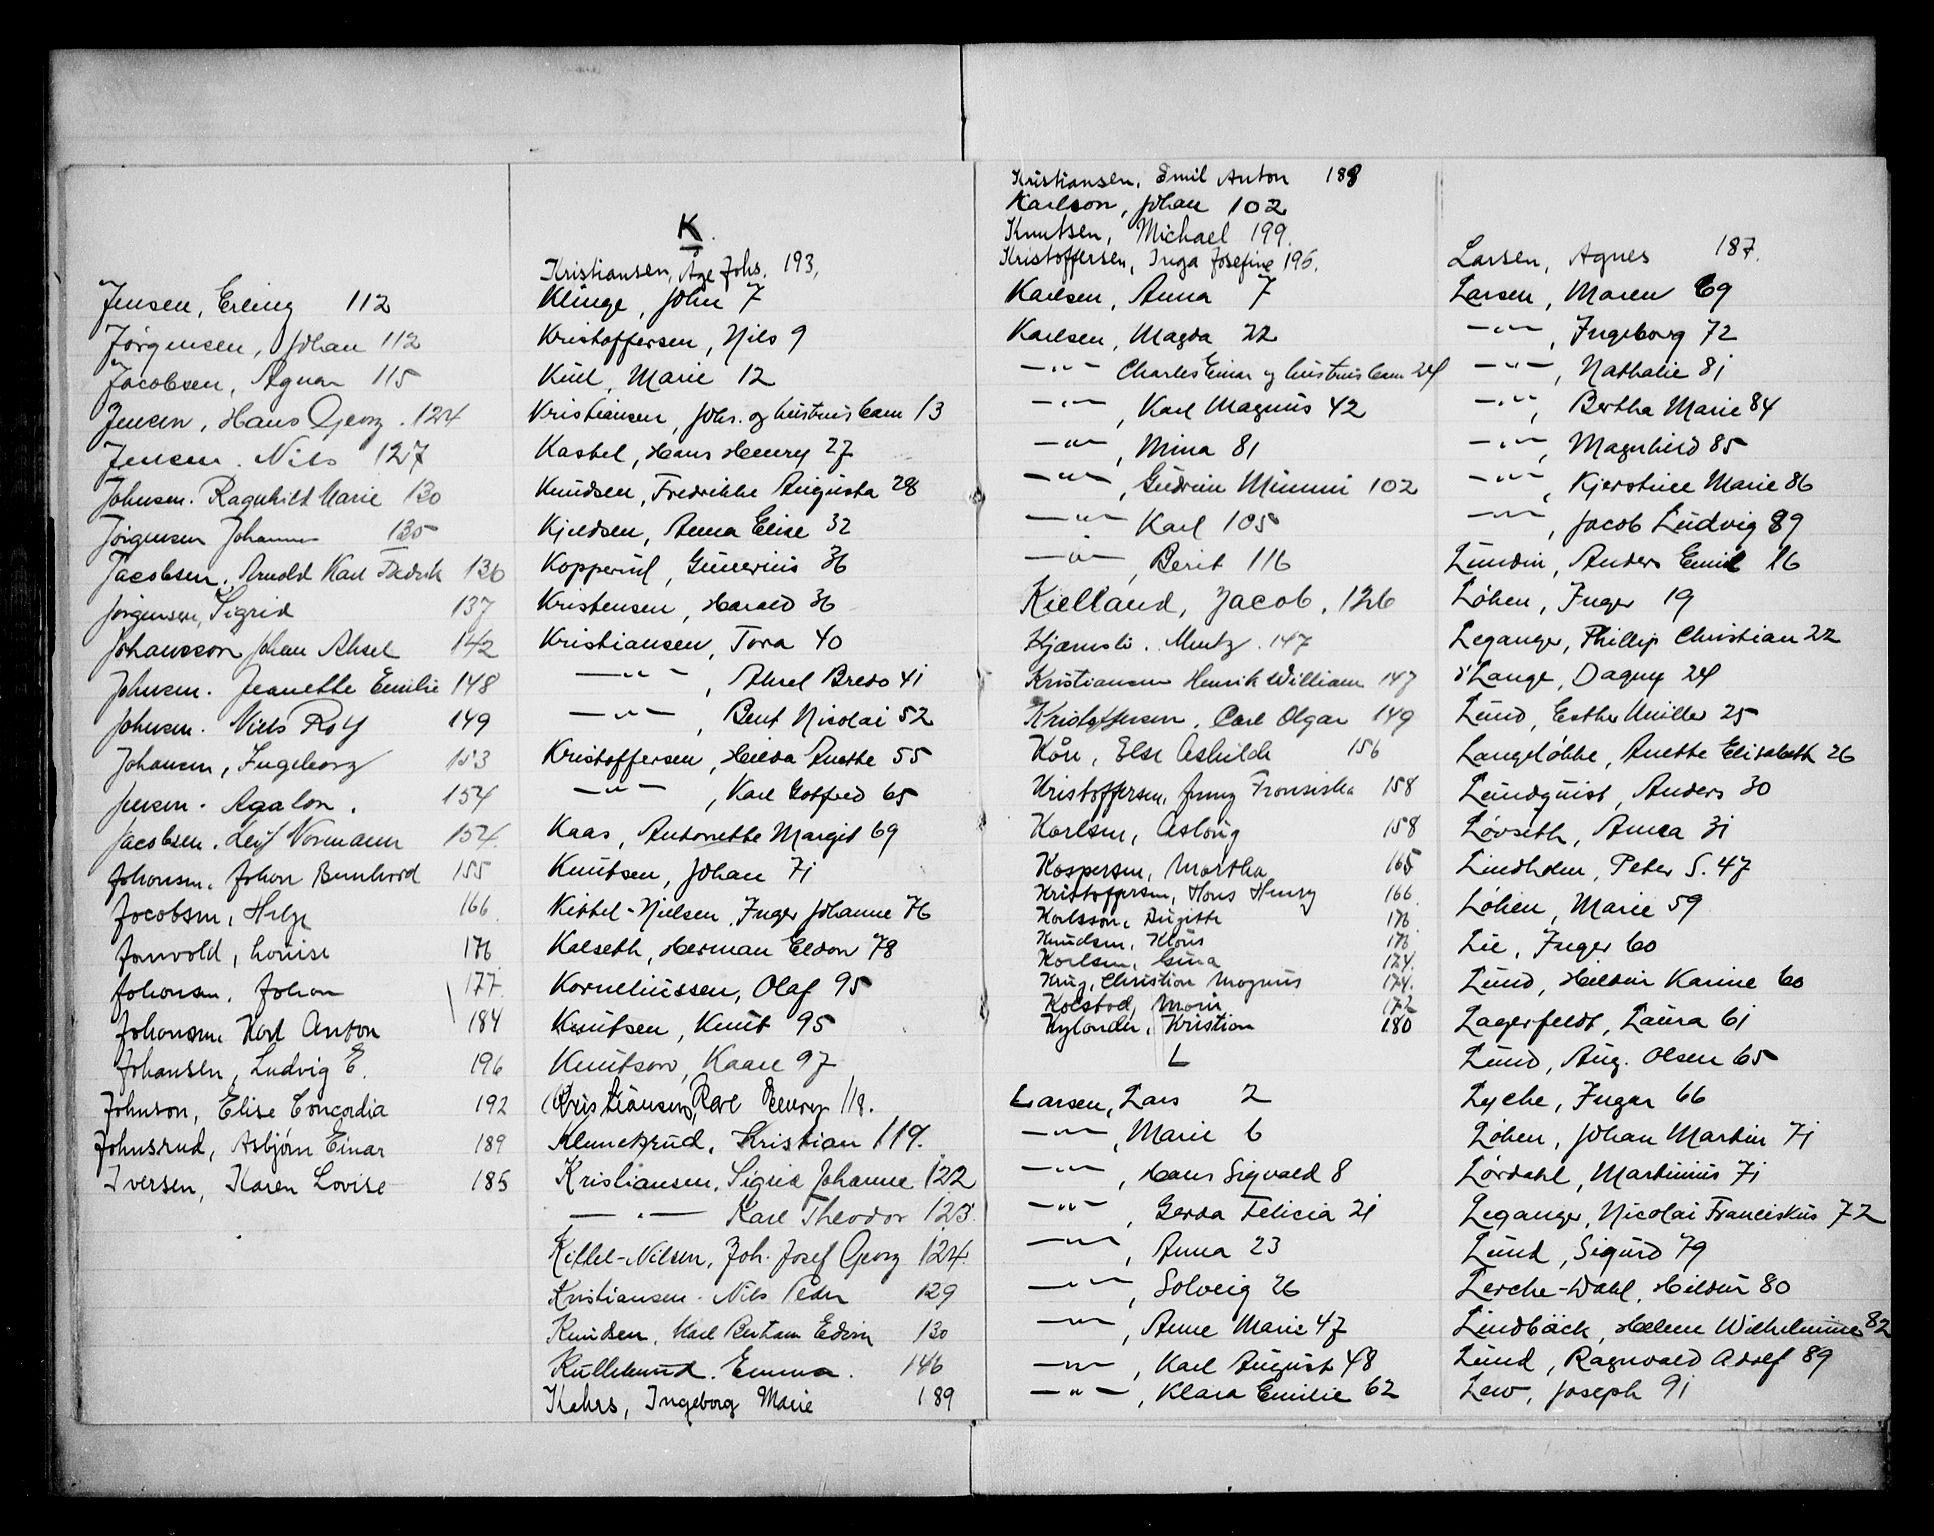 Jensen, Erling 112
Jörgensen, Johan 112
Jacobsen, Agnar 115
Jensen, Hans Georg. 124
Jensen. Nils 127
Johnsen. Ragnhild Marie 130
Jörgensen Johannes 135
Jacobsen. Arnold Karl Fredrik 136
Jörgensen, Sigrid 137
Johansson Johan Aksel 142
Johnsen. Jeanette Emilie 148
Johnsen. Niels Rolf 149
Johansen, Ingeborg 153
Jensen. Agaton. 154
Jacobsen. Leif Normann 154.
Johansen, Johan Bernhard 155
Jacobsen, Helge 166.
Jonvold, Louise 176
Johansen, Johan 177.
Johansen, Karl Anton 184
Johansen, Ludvig E. 196
Johnson, Elise Concordia 192
Johnsrud, Asbjørn Einar 189
Iversen, Karen Lovise 185
K.
Kristiansen, Åge Johs. 193,
Klinge, John 7
Kristoffersen, Nils 9
Kiil, Marie 12
Kristiansen, Johs. og hustrus barn 13
Kastel, Hans Henry 27
Knudsen, Fredrikke Augusta 28
Kjeldsen, Anna Elise 32
Kopperud, Gunerius 36
Kristensen, Harald 36
Kristiansen, Tora 40
—"—, Aksel Bredo 41
—"—, Bent Nicolai 52
Kristoffersen, Hilda Anette 55
—"—, Karl Gotfred 65
Kaas, Antonette Margit 69
Knutsen, Johan 71
Kittel-Nielsen, Inger Johanne 76
Kalseth, Herman Eldon 78
Korneliussen, Olaf 95
Knutsen, Knut 95
Knutson, Kaare 97
Kristiansen, Karl Henry 118.
Klunekrud, Kristian 119.
Kristiansen, Sigrid Johanne 122
—"— Karl Theodor 123.
Kittel-Nilsen, Joh. Josef Georg 124.
Kristiansen. Nils Peder 129
Knudsen, Karl Bertram Edvin 130
Kullerud. Emma. 146
Kahrs, Ingeborg Marie 189
Kristiansen, Emil Anton 188
Karlson, Johan 102
Knutsen, Michael 199.
Kristoffersen, Inga Josefine 196.
Karlsen, Anna 7
Karlsen, Magda 22
—"— Charles Einar og hustrus barn 24
—"—, Karl Magnus 42
—"—, Mina 81
—"—, Gudrun Mimmi 102
—"— Karl 105
—"—, Berit 116
Kielland, Jacob, 126
Kjærnsli. Mentz. 147
Kristiansen Henrik William 147
Kristoffersen. Carl Olgar 149
Kån, Else Åshilde 156
Kristoffersen, Jenny Fransiska 158
Karlsen, Aslaug 158
Kaspersen, Martha 165
Kristoffersen, Hans Henry 166.
Karlsson, Birgitte 176.
Knudsen, Klaus 176.
Karlsen, Gina 174.
Krug, Christian Magnus 174.
Kolstad, Marie 172
Kylander, Kristian 180
L
Larsen, Lars 2
—"—, Marie 6
—"—, Hans Sigvald 8
—"—, Gerda Felicia 21
—"—, Anna 23
—"—, Solveig 26
—"—, Anne Marie 47
—"—, Karl August 48
—"—, Klara Emilie 62
Larsen, Agnes 187.
Larsen, Maren 69
—"—, Ingeborg 72
—"—, Nathalie 81
—"—, Bertha Marie 84
—"—, Magnhild 85
—"—, Kjerstine Marie 86
—"—, Jacob Ludvig 89
Lundin, Anders Emil 16
Løken, Inger 19
Leganger, Phillip Christian 22
d'Lange, Dagny 24
Lund, Esther Miller 25
Langeløkke, Anette Elisabeth 26
Lundquist, Anders 30
Løvseth, Anna 31
Lindholm, Peter S. 47
Løken, Marie 59
Lie, Inger 60
Lund, Heldur Karine 60
Lagerfeldt, Laura 61
Lund, Aug. Olsen 65
Lyche, Inger 66
Løken, Johan Martin 71
Lørdahl, Martinius 71
Leganger, Nicolai Franciskus 72
Lund, Sigurd 79
Lerche-Dahl, Hildur 80
Lindbäck, Helene Wilhelmine 82
Lund, Ragnvald Adolf 89
Lew, Joseph 91